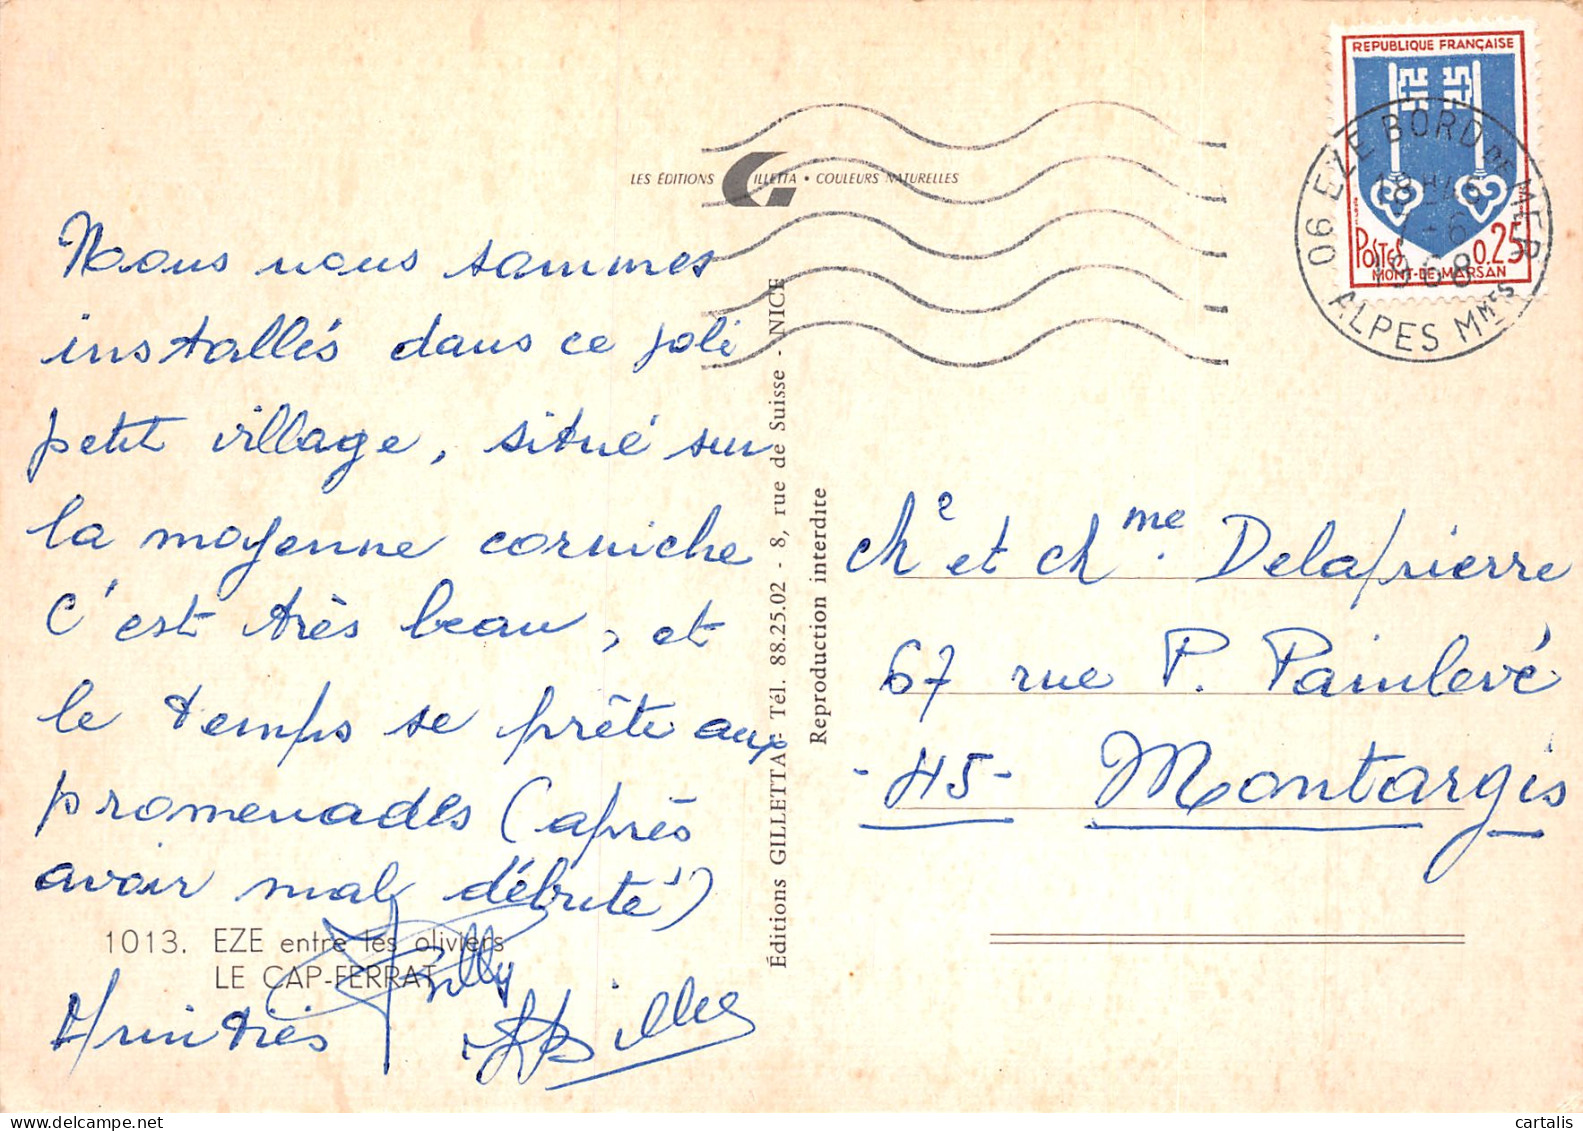 LES ÉDITIONS GILLETTA • COULEURS NATURELLES
REPUBLIQUE FRANÇAISE
POSTES 0.25
MONT-DE-MARSAN
06 EZE BORD DE MER
18H15
1968
ALPES MMES
Nous nous sommes
installés dans ce joli
petit village, situé sur
la moyenne corniche
C'est très beau, et
le temps se prête aux
promenades (après
avoir mal débuté)
1013. EZE entre les oliviers
LE CAP-FERRAT
Amitiés
Billy
Éditions GILLETTA - Tél. 88.25.02 - 8, rue de Suisse - NICE
Reproduction interdite
Mr et Mme. Delapierre
67 rue P. Painlevé
- 45 - Montargis
cartalis